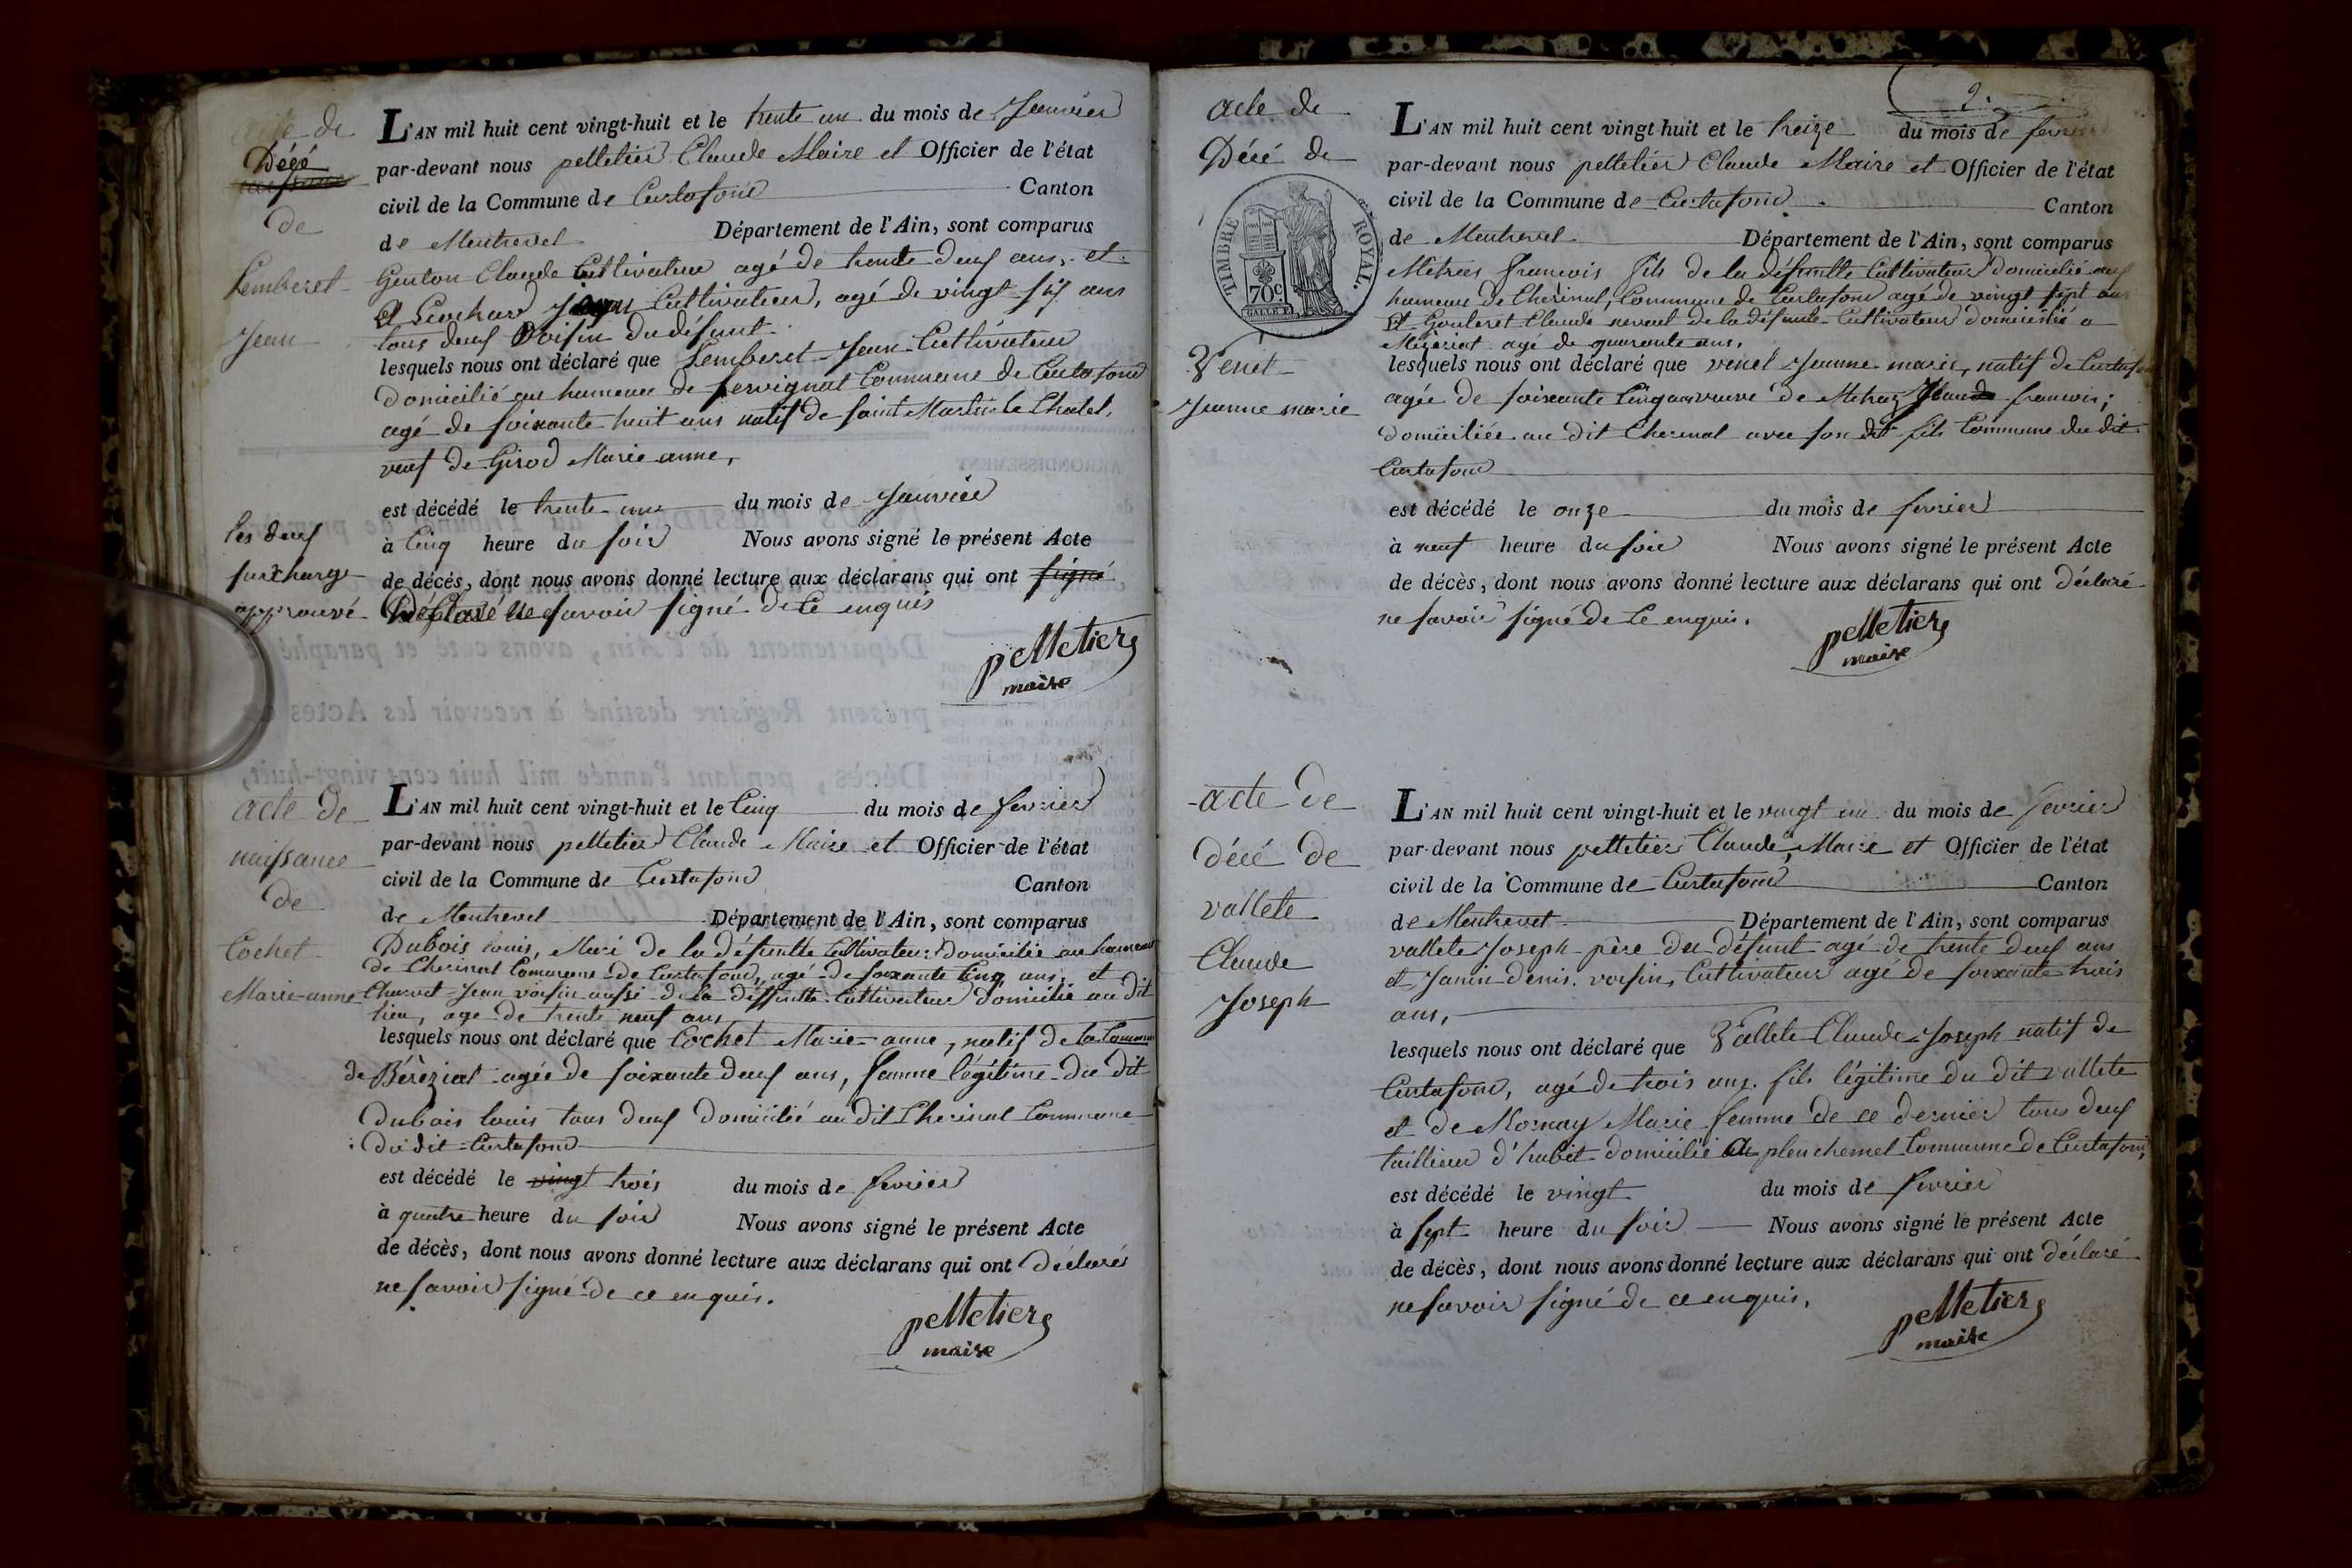 acte de
Décé
de
Lemberet
Jean
L'AN mil huit cent vingt-huit et le trente un du mois de Janvier
par-devant nous pelletier Claude Maire et Officier de l'état
civil de la Commune de Curtafond Canton
de Montrevel Département de l'Ain, sont comparus
Genton Claude Cultivateur agé de trente deux ans, et
Cultivateur, agé de vingt six ans
tous deux Voisin du défunt
lesquels nous ont déclaré que Lemberet Jean Cultivateur
domicilié au hameau de servignat Commune de Curtafond
agé de soixante huit ans natif de saint Martin le Chatel,
veuf de Girod Marie anne,
est décédé le trente un du mois de Janvier
à Cinq heure du soir Nous avons signé le présent Acte
de décés, dont nous avons donné lecture aux déclarans qui ont signé
Déclaré ne savoir signé de Ce enquis
les deux
surcharge
approuvé
pelletier
maire
acte de
naissance
de
Cochet
Marie-anne
L'AN mil huit cent vingt-huit et le Cinq du mois de fevrier
par-devant nous pelletier Claude Maire et Officier de l'état
civil de la Commune de Curtafond Canton
de Montrevel Département de l'Ain, sont comparus
Dubois Louis, Mari de la défunte Cultivateur domicilié au hameau
de Cherinal Commune de Curtafond, agé de soixante Cinq ans, et
Charvet Jean voisin aussi de la deffunte Cultivateur domicilié au dit
lieu, age de trente neuf ans
lesquels nous ont déclaré que Cochet Marie-anne, natif de la Commune
de Béréziat agée de soixante deux ans, femme légitime du dit
Dubois louis tous deux domicilié au dit Cherinal Commune
du dit Curtafond
est décédé le vingt trois du mois de fevrier
à quatre heure du soir Nous avons signé le présent Acte
de décès, dont nous avons donné lecture aux déclarans qui ont déclaré
ne savoir signé de ce enquis.
pelletier
maire
2.
acte de
Décé de
TIMBRE ROYAL.
70c.
Venet
Jeanne marie
L'AN mil huit cent vingt-huit et le treize du mois de fevrier
par-devant nous pelletier Claude Maire et Officier de l'état
civil de la Commune de Curtafond Canton
de Montrevel Département de l'Ain, sont comparus
Metras francois fils de la défunte Cultivateur domicilié au
hameau de Cherinal, Commune de Curtafond agé de vingt sept ans
Et Gouleret Claude neveut de la défunte Cultivateur domicilié a
Mézériat agé de quarante ans,
lesquels nous ont déclaré que venet Jeanne marie, natif de Curtafond
agée de soixante Cinq ans veuve de Metraz francois;
domiciliée au dit Cherinal avec son dit fils Commune du dit
Curtafond
est décédé le onze du mois de fevrier
à neuf heure du soir Nous avons signé le présent Acte
de décès, dont nous avons donné lecture aux déclarans qui ont Déclaré
ne savoir signé de Ce enquis.
pelletier
maire
acte de
décé de
vallete
Claude
Joseph
L'AN mil huit cent vingt-huit et le vingt un du mois de fevrier
par-devant nous pelletier Claude Maire et Officier de l'état
civil de la Commune de Curtafond Canton
de Montrevel Département de l'Ain, sont comparus
vallete Joseph père du défunt agé de trente deux ans
et Janin denis voisin, Cultivateur agé de soixante trois
ans,
lesquels nous ont déclaré que Vallete Claude-Joseph natif de
Curtafond, agé de trois ans. fils légitime du dit vallete
et de Mornay Marie femme de ce dernier tous deux
taillieur d'habit domicilié a plenchemel Commune de Curtafond,
est décédé le vingt du mois de fevrier
à sept heure du soir Nous avons signé le présent Acte
de décès, dont nous avons donné lecture aux déclarans qui ont déclaré
ne savoir signé de ce enquis,
pelletier
maire